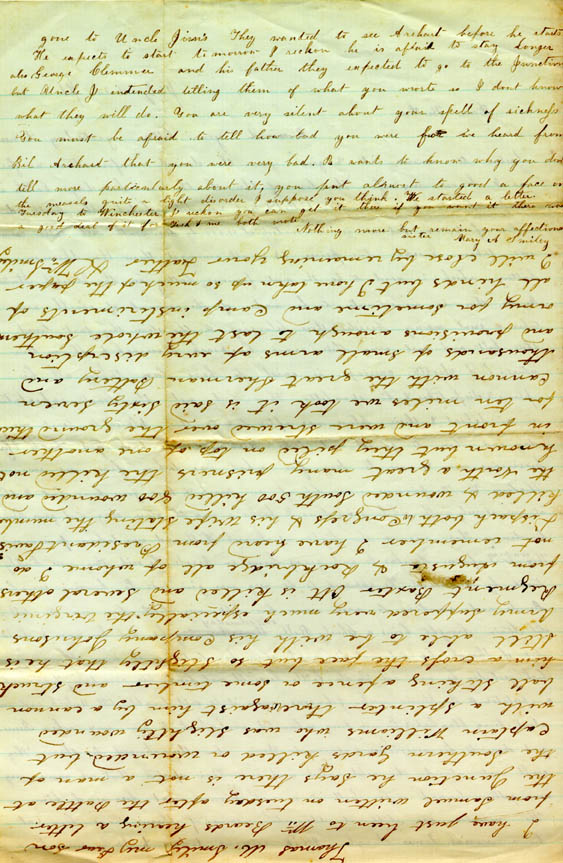 gone to Uncle Jims They wanted to see Archart before he starts
He expects to start tomorrow I reckon he is afraid to stay longer
also George Clemmer and his father they expected to go to the Junction
but Uncle J intended telling them of what you wrote so I dont know
what they will do. You are very silent about your spell of sickness
You must be afraid to tell how bad you were for ive heard from
Bil Archart that you were very bad. Pa wants to know why you dont
tell more particularly about it, you put almost to good a face on
the measels quite a light disorder I suppose you think. We started a letter
Tuesday to Winchester I reckon you can get it there if you want it there was
a good deal of it for both me both wrote
Nothing more but remain your affectionate
sister Mary A Smiley
Thomas M. Smiley my dear son
I have just been to Wm Beards hearing a letter
from Samuel Willson on tuesday after the battle at
the Junction he says there is not a man of
the Southern Gards killed or wounded but
Captain Williams who was slightly wounded
with a splinter throw against him by a cannon
ball striking a fence or some timber and struck
him a cross the face but so slightly that he is
still able to be with his Company Johnsons
Army suffered very much especially the Virginia
Regment Baxter Ott is killed and several others
from Augusta & Rockbridge all of whome I do
not remember I have heard from Presidant Davis
Dispach both to Congress & his wife stating the number
killed & wounded South 500 killed &00 wounded and
the North a great many prisners the killed not
known but they piled on top of one another
in front and were strewed over the ground thick
for ten miles we took it is said Sixty Seven
Cannon with the great Sherman Battery and
thousands of small arms of evry discription
and provisions anough to last the whole Southern
army for sometime and Camp instriments of
all kinds but I have taken up so much of the paper
I will close by remaining your Father Wm Smiley